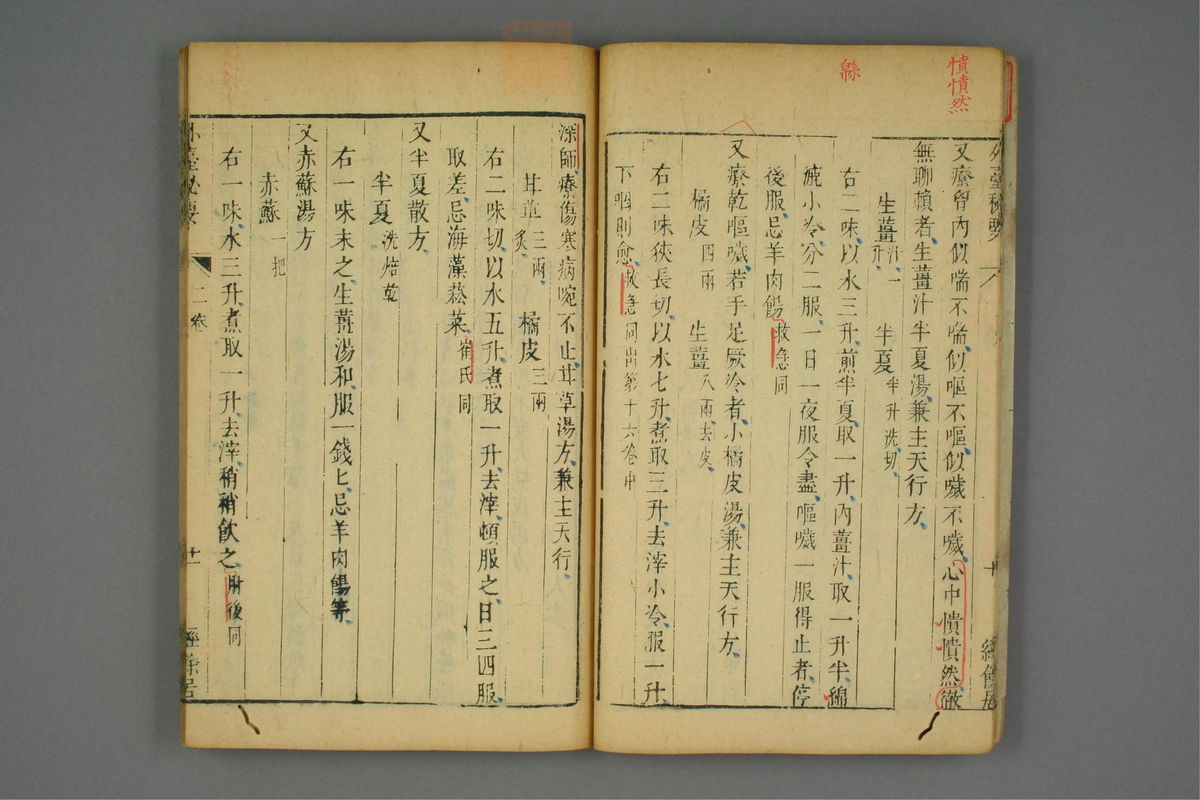 憒憒然
緜
外臺秘要
十
經餘居
又療胷內似喘不喘似嘔不嘔似噦不噦心中憒憒然徹
無聊賴者生薑汁半夏湯兼主天行方
生薑汁一升 半夏半升洗切
右二味以水三升煎半夏取一升內薑汁取一升半綿
漉小冷分二服一日一夜服令盡嘔噦一服得止者停
後服忌羊肉餳救急同
又療乾嘔噦若手足厥冷者小橘皮湯兼主天行方
橘皮四兩 生薑八兩去皮
右二味狹長切以水七升煮取三升去滓小冷服一升
下咽則愈救急同出第十六卷中
深師療傷寒病啘不止甘草湯方兼主天行
甘草三兩炙 橘皮三兩
右二味切以水五升煮取一升去滓頓服之日三四服
取差忌海藻菘菜崔氏同
又半夏散方
半夏洗焙乾
右一味末之生薑湯和服一錢匕忌羊肉餳等
又赤蘇湯方
赤蘇一把
右一味水三升煮取一升去滓稍稍飲之肘後同
外臺秘要
二卷
十一
經餘居